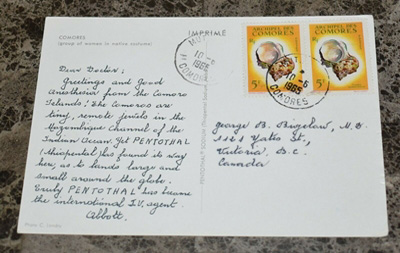 COMORES
(group of women in native costume)
IMPRIMÉ
Dear Doctor;
Greetings and Good
Anesthesia from the Comoro
Islands! The Comoros are
tiny, remote jewels in the
Mozambique Channel of the
Indian Ocean. Yet PENTOTHAL
(thiopental) has found its way
here, as to lands large and
small around the globe.
Truly PENTOTHAL has become
the international I.V. agent.
Abbott.
10 -6
1965
COMORES
ARCHIPEL DES
COMORES
5F
ARCHIPEL DES
COMORES
5F
10 -6
1965
COMORES
George B. Bigelow, M.D.
Yates St.,
Victoria, B.C.
Canada